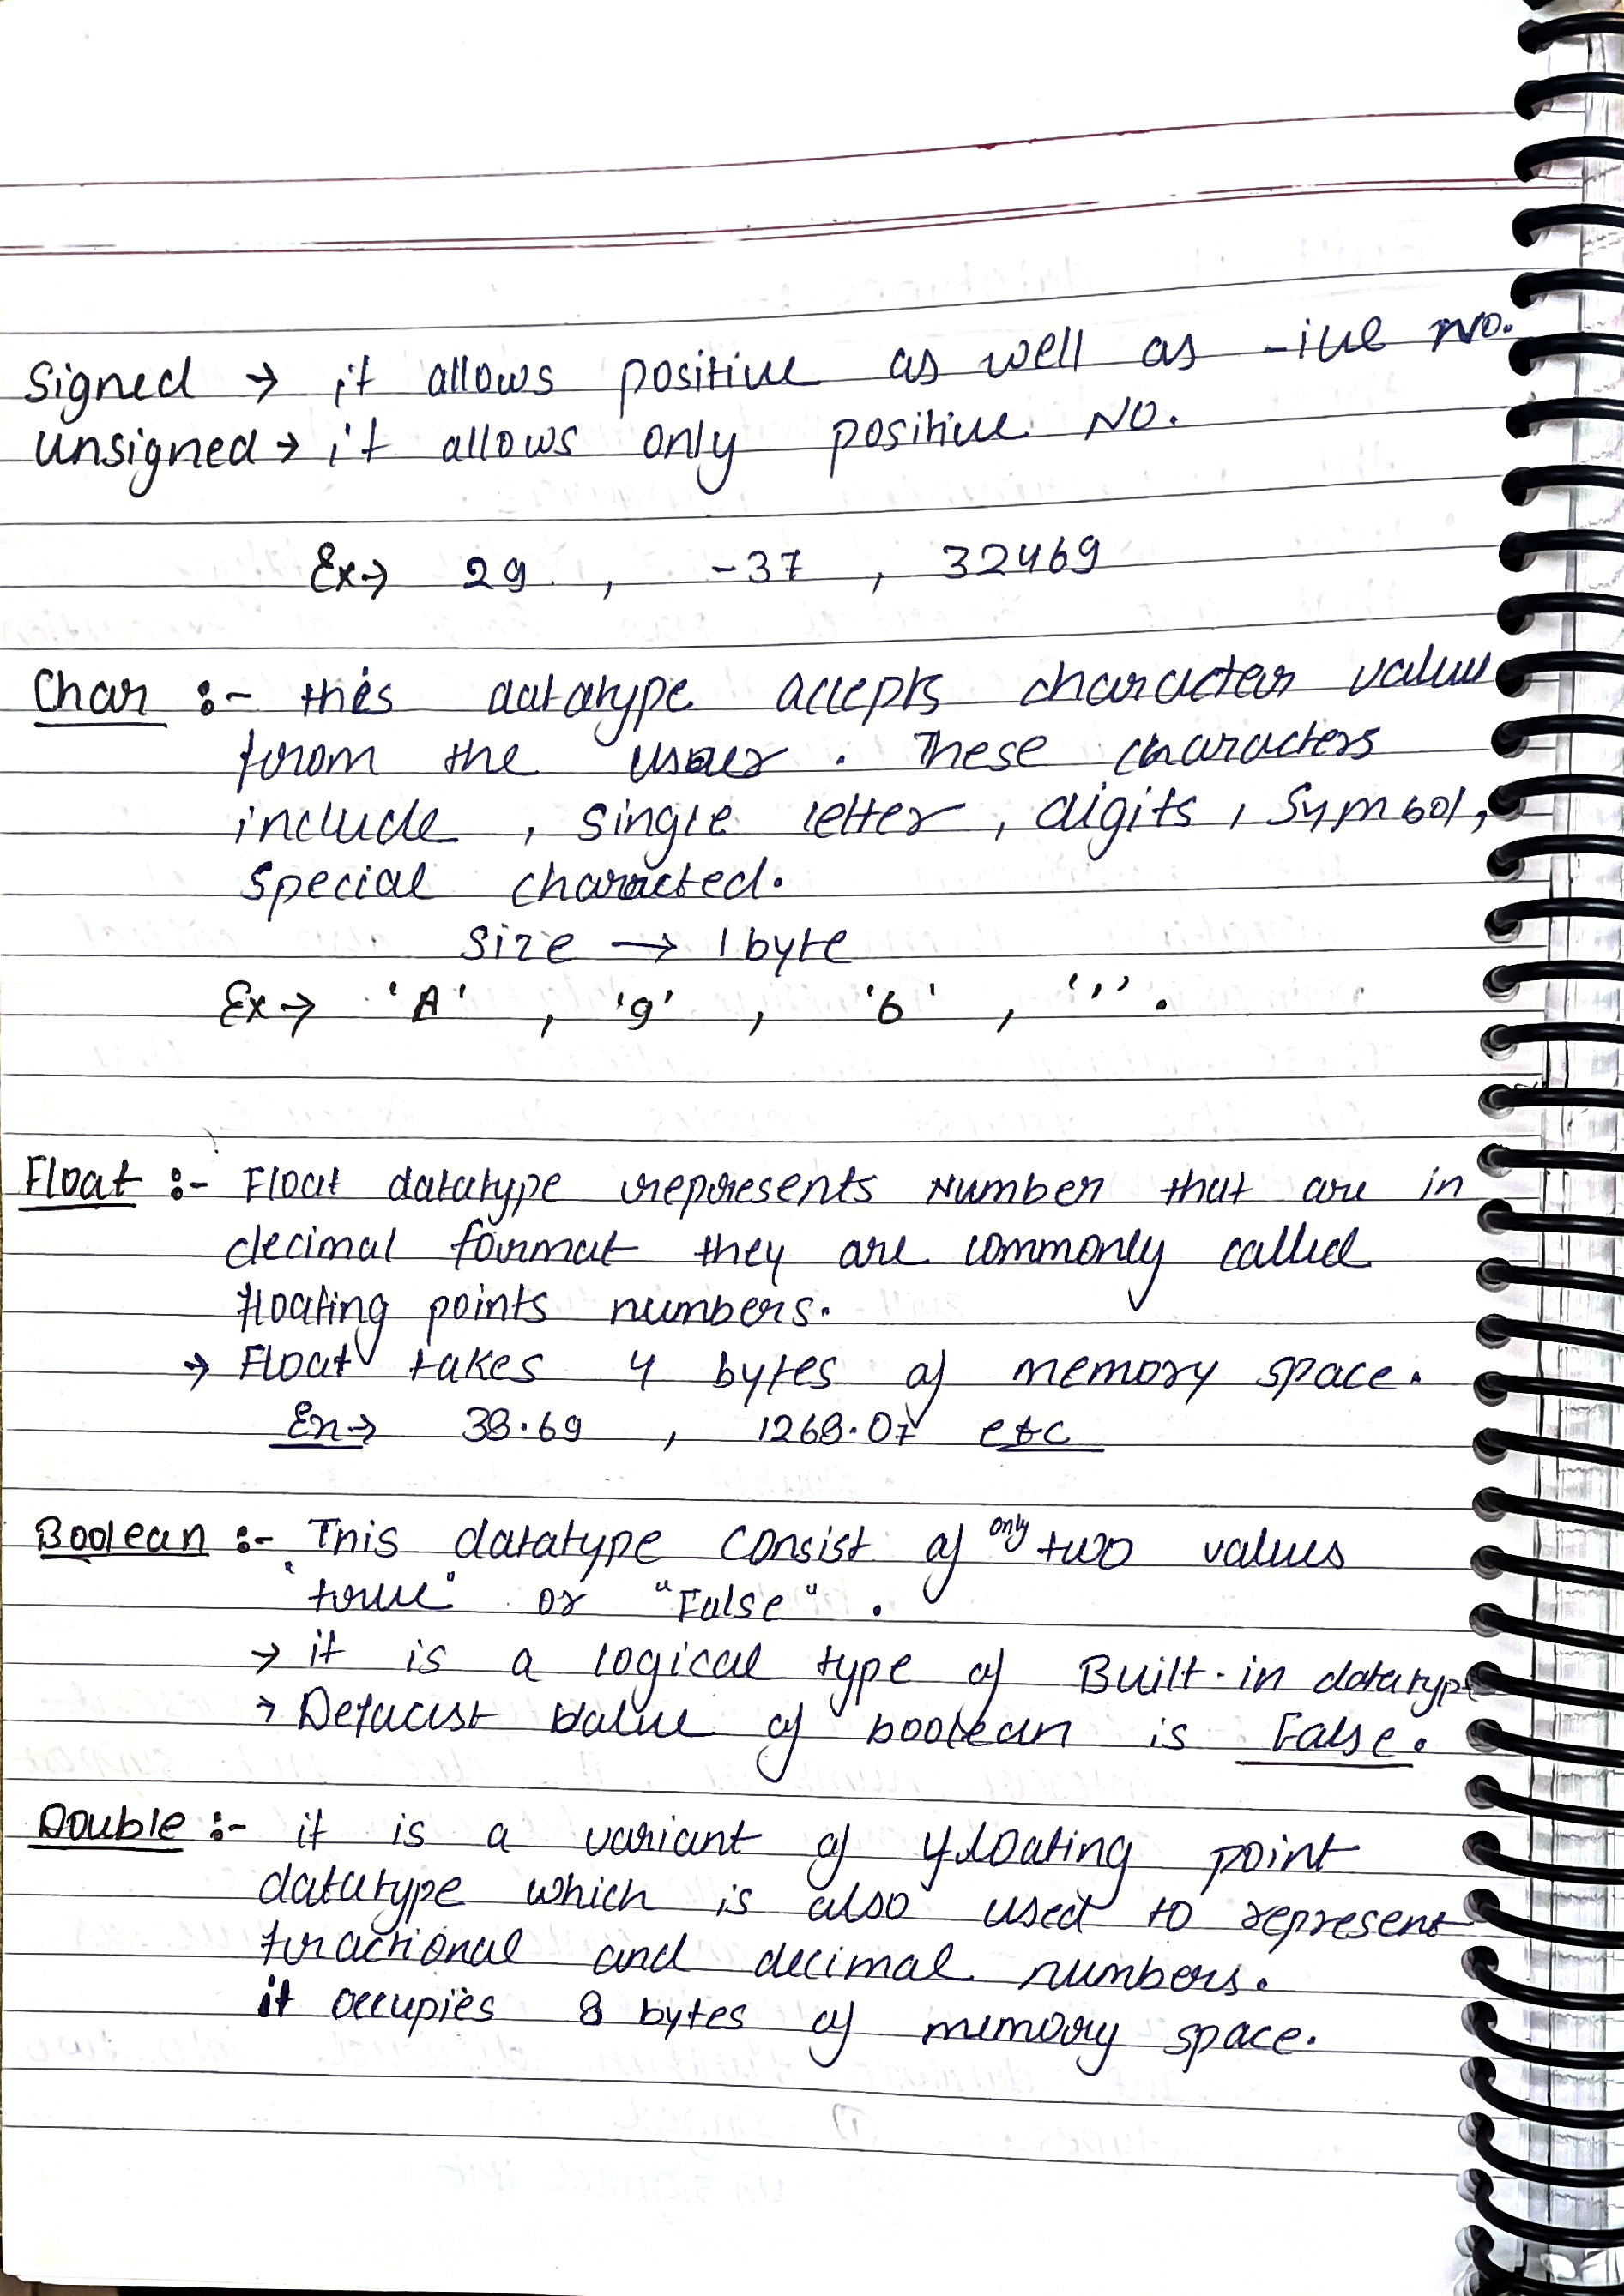 Signed → it allows positive as well as -ive NO.
unsigned → it allows only positive NO.
Ex→ 29 , -37 , 32469
Char :- this datatype accepts character value
from the user . These characters
include , single letter , digits , Symbol,
special characted.
Size → 1 byte
Ex→ 'A' , '9' , '6' , ','.
Float :- Float datatype represents Number that are in
decimal format they are commonly called
floating points numbers.
→ Float takes 4 bytes of memory space.
Ex→ 38.69 , 1268.07 etc
Boolean :- This datatype consist of only two values
"true" or "False" .
→ it is a logical type of Built-in datatype
→ Default value of boolean is False.
Double :- it is a variant of floating point
datatype which is also used to represent
fractional and decimal numbers.
it occupies 8 bytes of memory space.